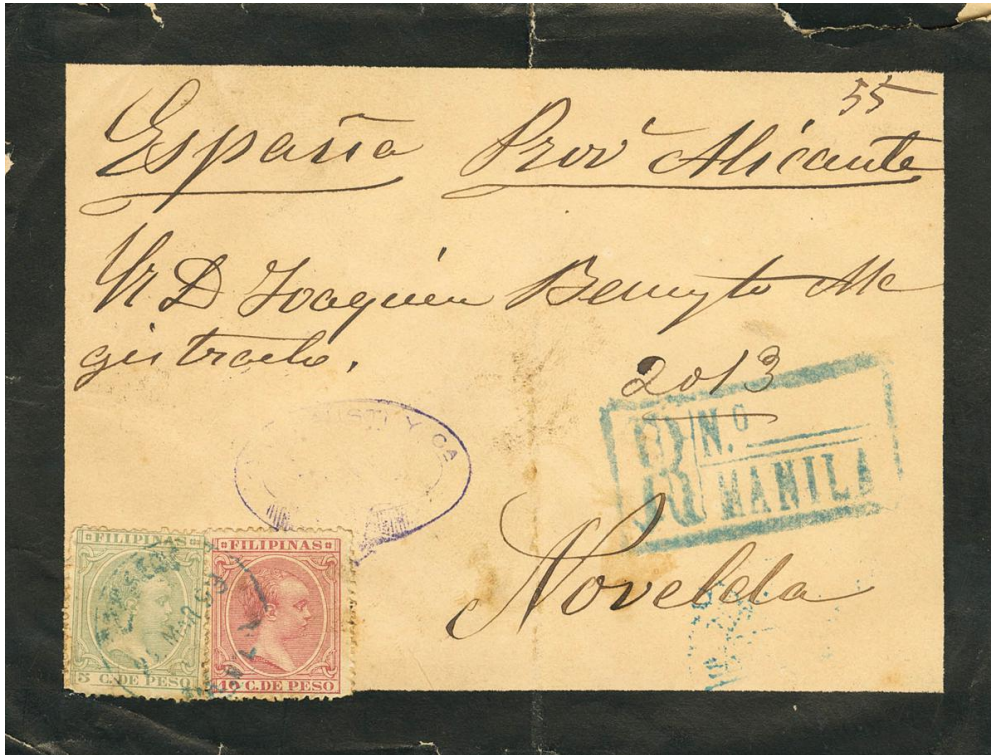 55
España Provª Alicante
Sr D Joaquin Benyto Ma
gistrado.
2013
R N.º
MANILA
Y CA
Novelda
FILIPINAS
5 C. DE PESO
FILIPINAS
10 C. DE PESO